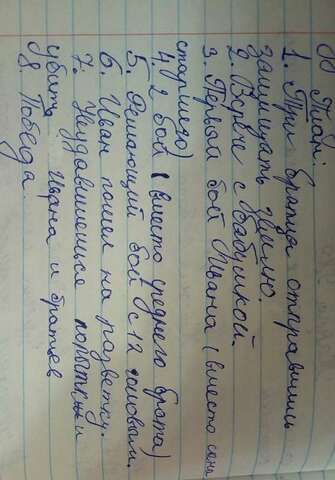 План.
1. Три братца отправились
защищать землю.
2. Встреча с бабушкой.
3. Первый бой Ивана (вместо
старшего)
4. 2 бой (вместо среднего брата)
5. Решающий бой с 12 головым.
6. Иван пошел на разветку.
7. Неудавшиеся попытки
убить Ивана и братьев
8. Победа.